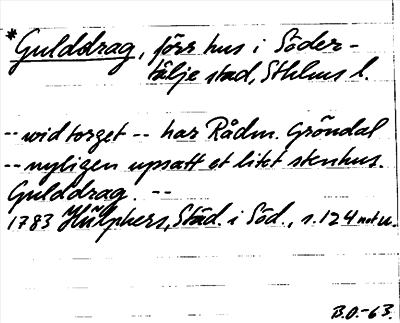 *Gulddrag, förr hus i Söder-
tälje stad, Sthlms l.
-- wid torget -- har Rådm. Gröndal
-- nyligen upsatt et litet stenhus.
Gulddrag. --
1783 Hülphers, Städ. i Söd., s. 124 not u.
B.O.-63.